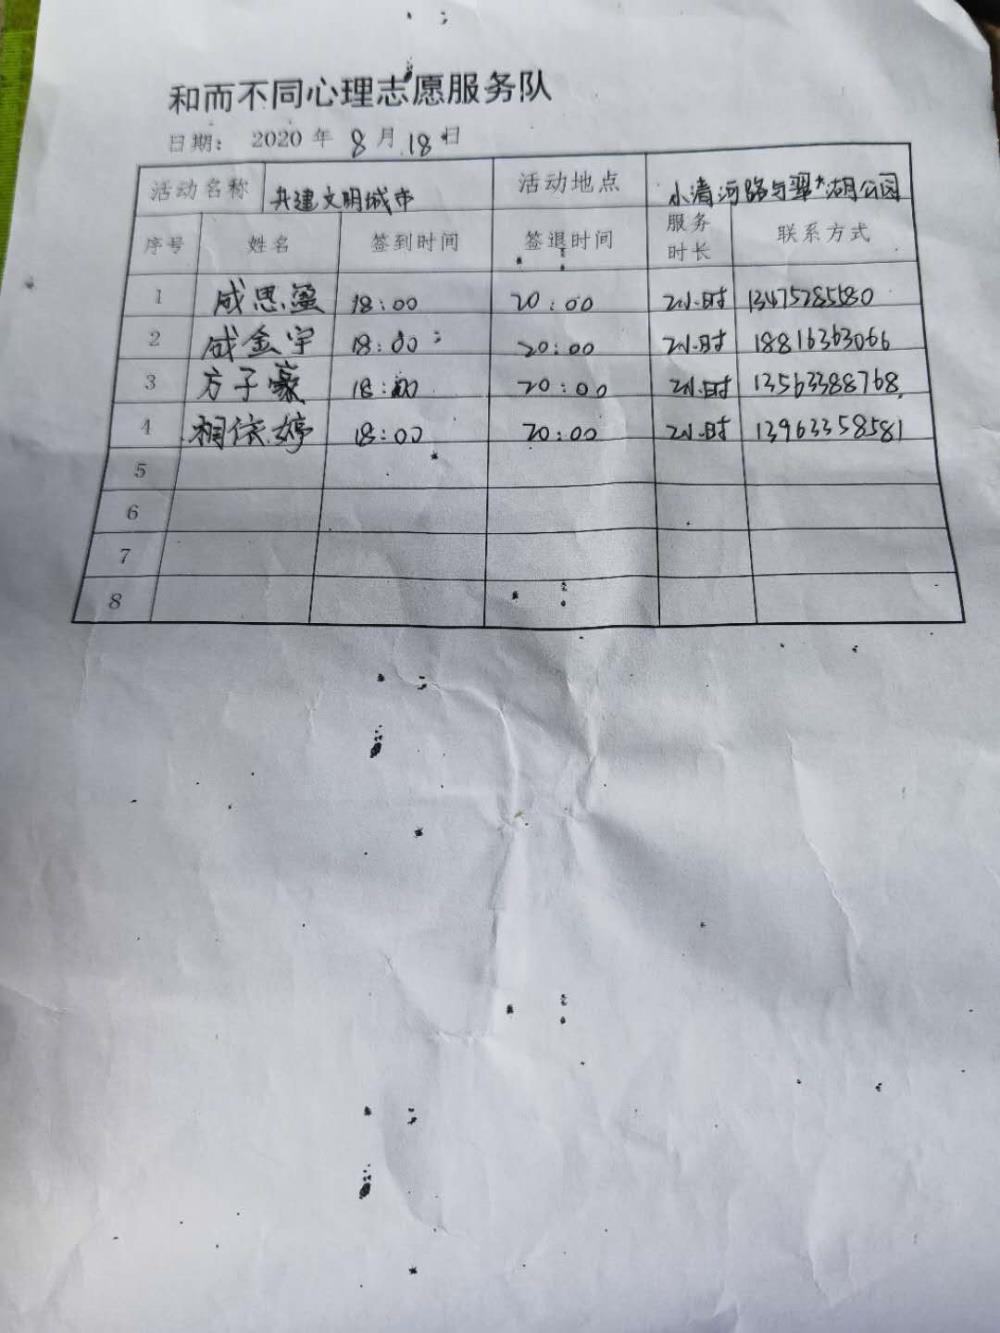 和而不同心理志愿服务队
日期： 2020 年 8 月 18 日
活动名称 共建文明城市 活动地点 小清河路与翠湖公园
序号 姓名 签到时间 签退时间 服务时长 联系方式
1 咸思盈 18:00 20:00 2小时 13475285580
2 咸金宇 18:00 20:00 2小时 18816363066
3 方子豪 18:00 20:00 2小时 13563388768
4 相依婷 18:00 20:00 2小时 13963358581
5
6
7
8